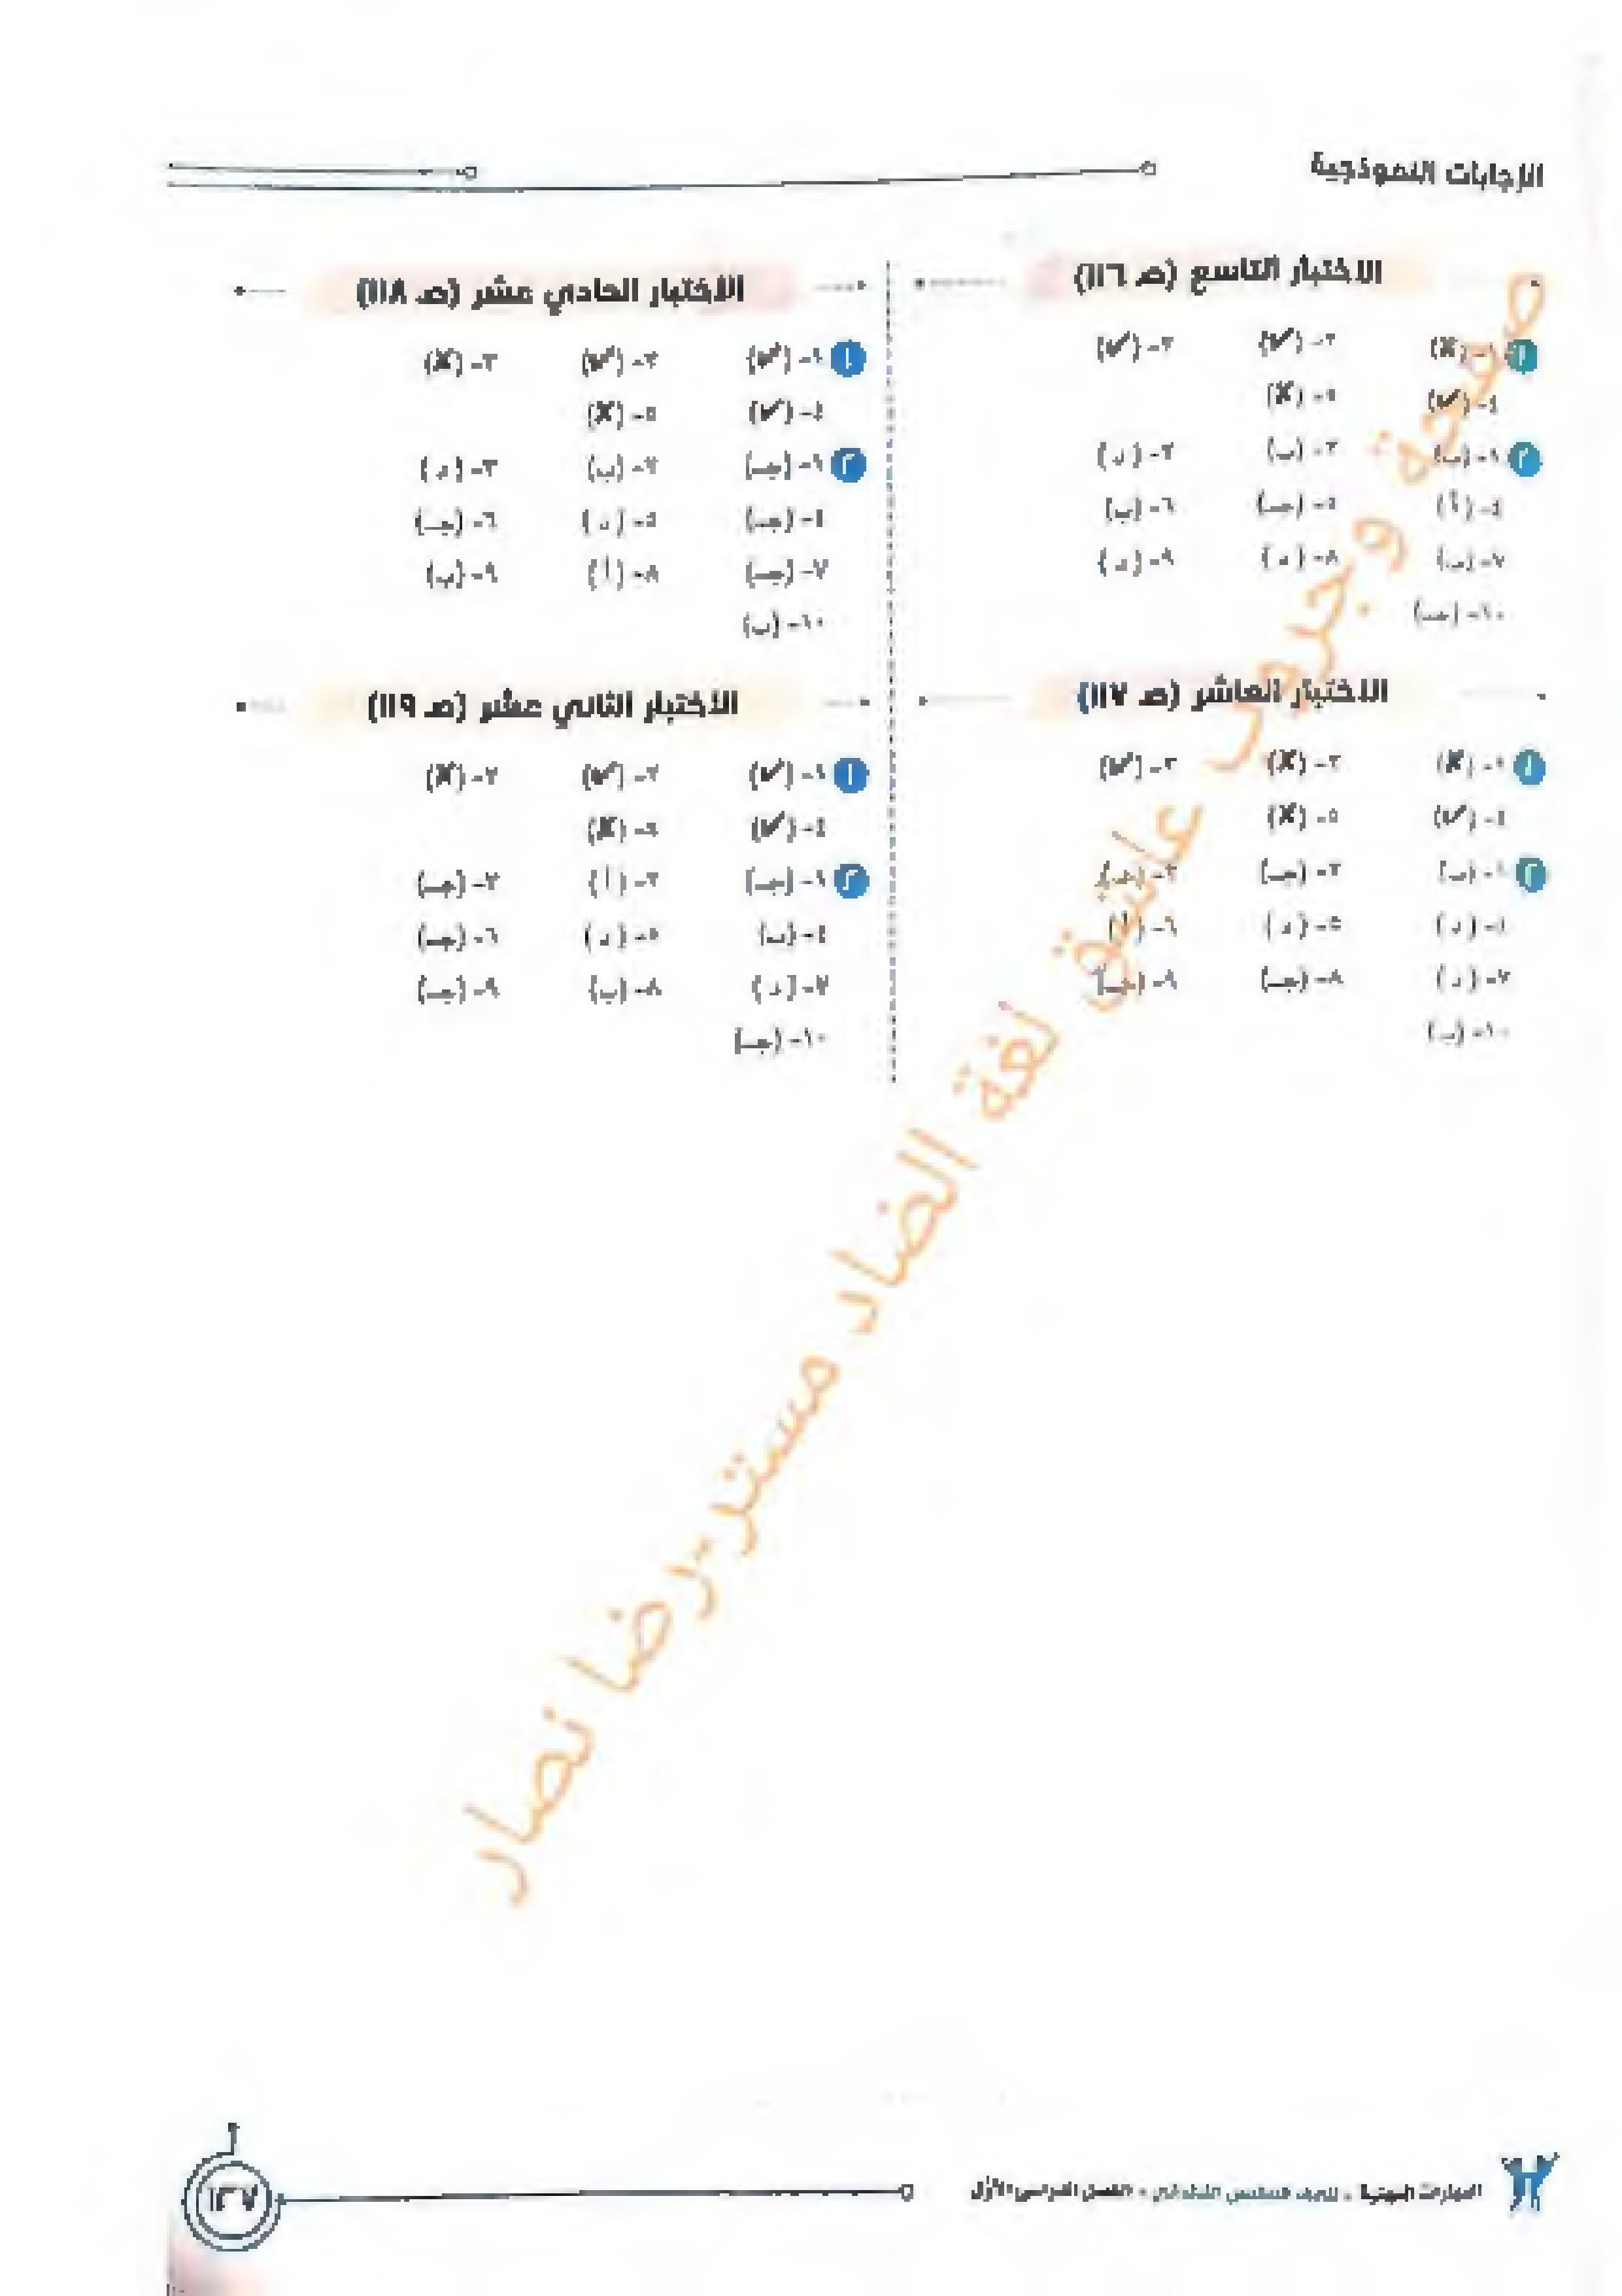 الإجابات النموذجية
الاختبار التاسع (صـ ١١٦)
١ ١- (✗) ٢- (✓) ٣- (✓)
٤- (✓) ٥- (✗)
٢ ١- (ب) ٢- (ب) ٣- (د)
٤- (أ) ٥- (جـ) ٦- (ب)
٧- (ب) ٨- (د) ٩- (د)
١٠- (جـ)
الاختبار العاشر (صـ ١١٧)
١ ١- (✗) ٢- (✗) ٣- (✓)
٤- (✓) ٥- (✗)
٢ ١- (ب) ٢- (جـ) ٣- (جـ)
٤- (د) ٥- (د) ٦- (أ)
٧- (د) ٨- (جـ) ٩- (جـ)
١٠- (ب)
الاختبار الحادي عشر (صـ ١١٨)
١ ١- (✓) ٢- (✓) ٣- (✗)
٤- (✓) ٥- (✗)
٢ ١- (جـ) ٢- (ب) ٣- (د)
٤- (جـ) ٥- (د) ٦- (جـ)
٧- (جـ) ٨- (أ) ٩- (ب)
١٠- (ب)
الاختبار الثاني عشر (صـ ١١٩)
١ ١- (✓) ٢- (✓) ٣- (✗)
٤- (✓) ٥- (✗)
٢ ١- (جـ) ٢- (أ) ٣- (جـ)
٤- (ب) ٥- (د) ٦- (جـ)
٧- (د) ٨- (ب) ٩- (جـ)
١٠- (جـ)
صفحة وجروب عاشق لغة الضاد مستر رضا نصار
المهارات المهنية - للصف السادس الابتدائي - الفصل الدراسي الأول
١٣٧